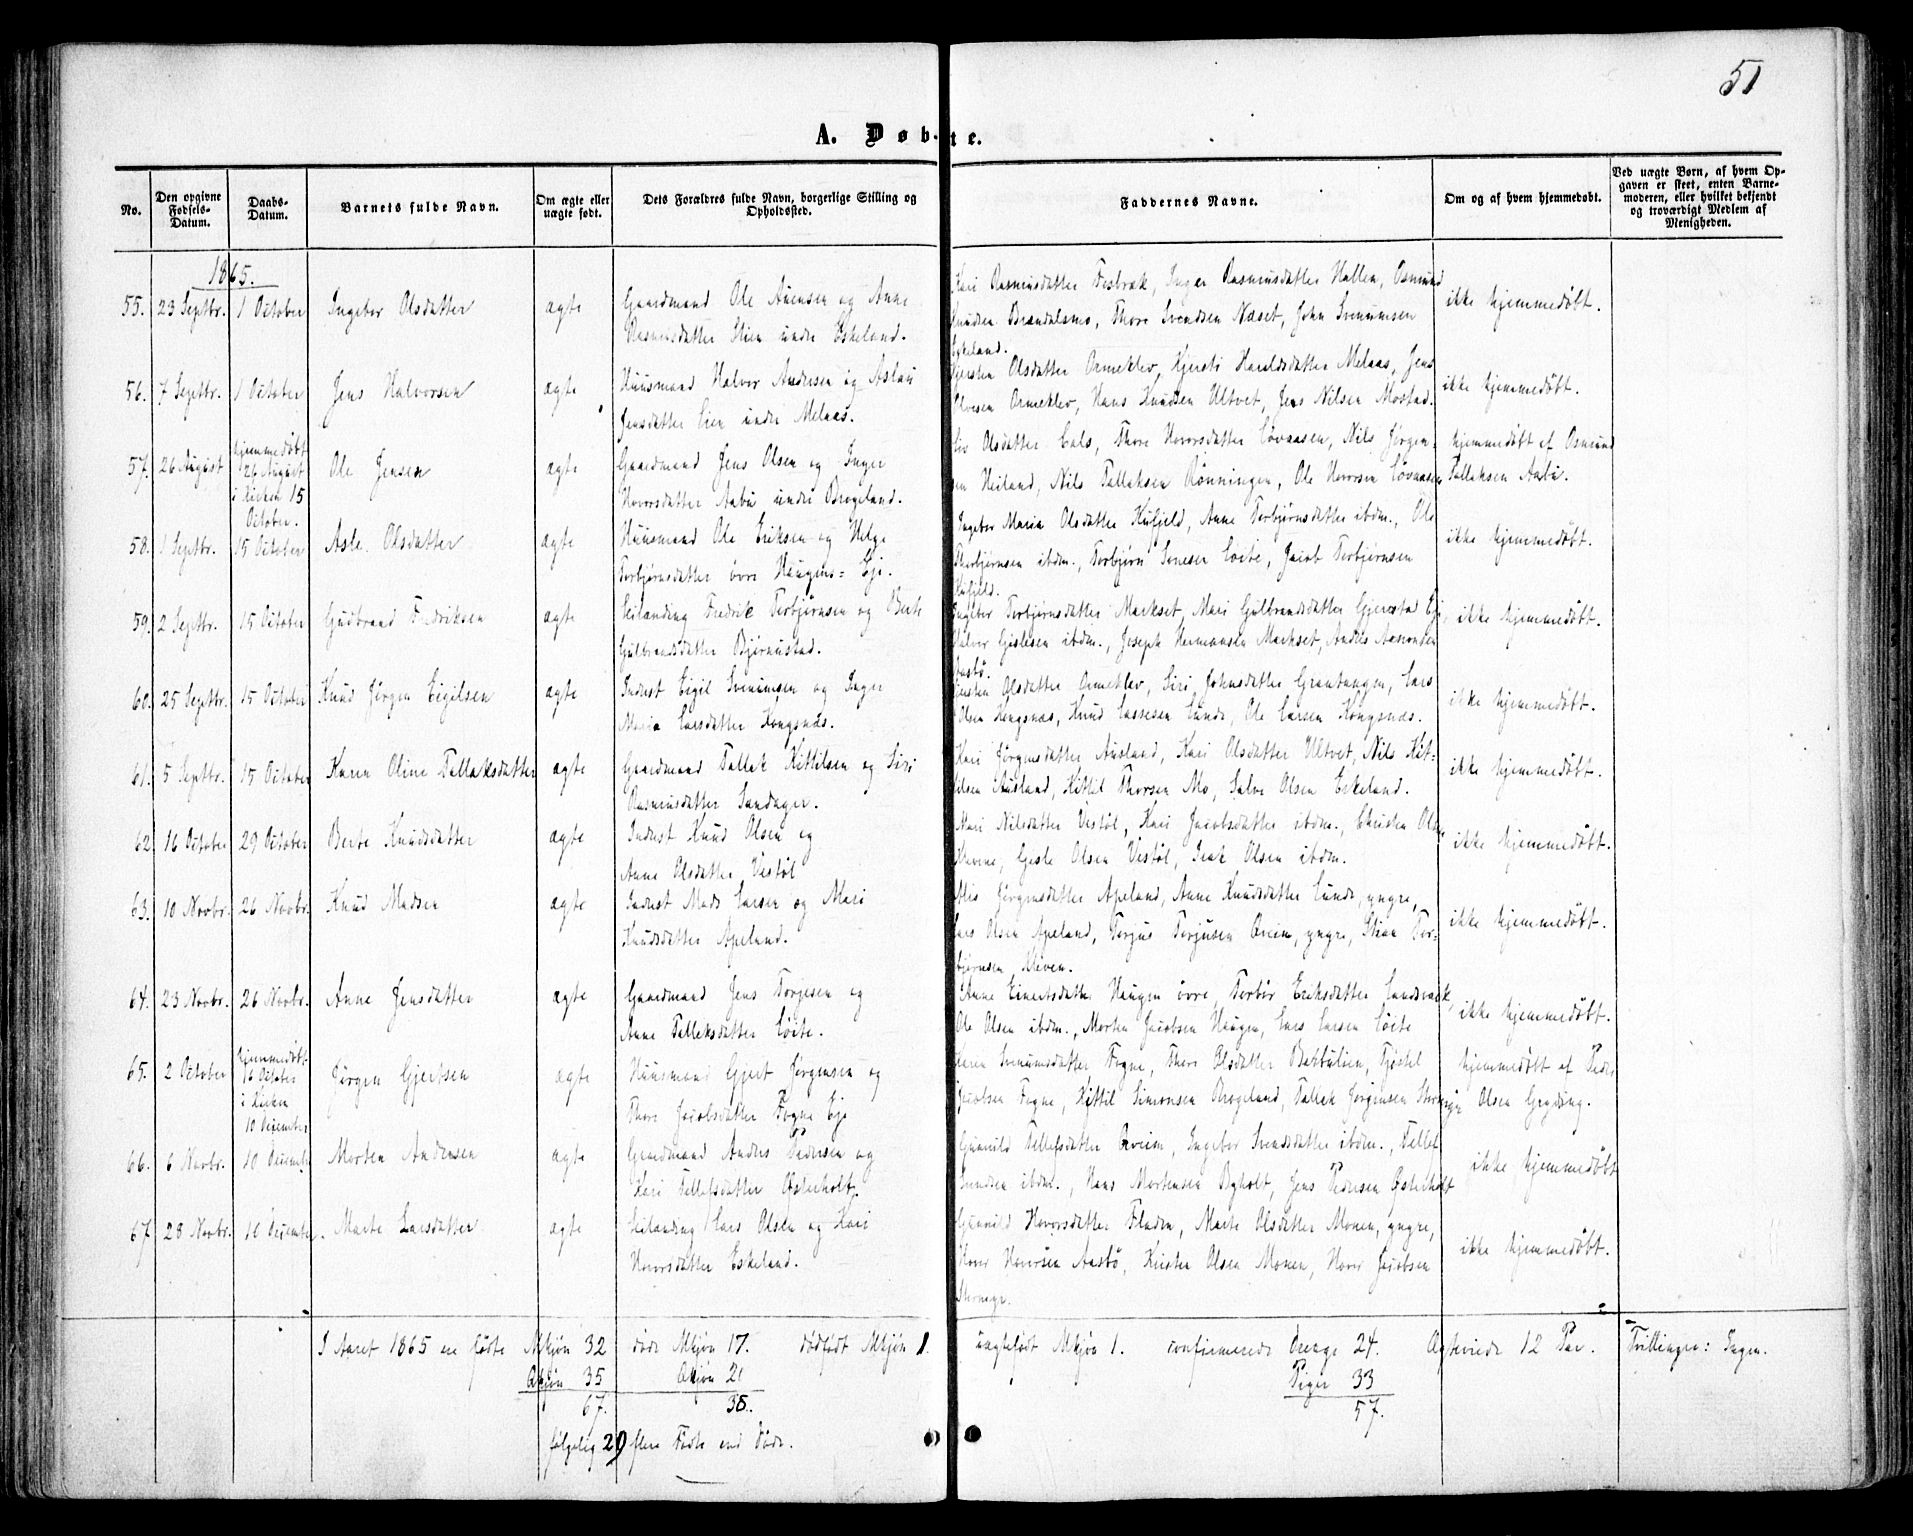 51
A. Døbte.
No.
Den opgivne Fødsels-Datum.
Daabs-Datum.
Barnets fulde Navn.
Om ægte eller uægte født.
Dets Forældres fulde Navn, borgerlige Stilling og Opholdssted.
Faddernes Navne.
Om og af hvem hjemmedøbt.
Ved uægte Børn, af hvem Opgaven er skeet, enten Barnemoderen, eller hvilket bekjendt og troværdigt Medlem af Menigheden.
1865.
55. 23 Septbr. 1 October Ingebor Olsdatter ægte Gaardmand Ole Auensen og Anne
Rasmusdatter Stien under Eskeland.
Kari Rasmusdatter Fosbræk, Inger Rasmusdatter Hallen, Osmund
Knudsen Brændalsmo, Thore Svendsen Næset, John Svenumsen
Eskeland.
ikke hjemmedøbt.
56. 7 Septbr. 1 October Jens Halvorsen ægte Huusmand Halvor Andersen og Aslau
Jensdatter Lien under Melaas.
Kjersten Olsdatter Ormeklev, Kjersti Haraldsdatter Melaas, Jens
Olvesen Ormeklev, Hans Knudsen Ultvet, Jens Nilsen Mostad.
ikke hjemmedøbt.
57. 26 August hjemmedøbt
26 August
i Kirken 15
October.
Ole Jensen ægte Gaardmand Jens Olsen og Inger
Hovorsdatter Aabø under Brogeland.
Liv Olsdatter Eals, Thore Hovorsdatter Løvaasen, Nils Jørgen-
sen Heiland, Nils Tallaksen Rønningen, Ole Hovorsen Løvaasen
hjemmedøbt af Osmund
Tallaksen Aabø.
58. 1 Septbr. 15 October Asle Olsdatter ægte Huusmand Ole Eriksen og Helge
Torbjørnsdatter øvre Haugens Eje.
Ingebor Maria Olsdatter Kufjeld, Anne Torbjørnsdatter ibdm., Ole
Thorbjørnsen ibdm., Torbjørn Løite, Jacob Torbjørnsen
Kufjeld.
ikke hjemmedøbt.
59. 2 Septbr. 15 October Gudbrand Fredriksen ægte Heilanding Fredrik Torbjørnsen og Berte
Gulbrandsdatter Bjørnustad.
Ingebor Torbjørnsdatter Markset, Mari Gulbrandsdatter Gjerstad Eje,
Halvor Gislesen ibdm., Joseph Hermansen Markset, Anders Aanonsen
Aasbø.
ikke hjemmedøbt.
60. 25 Septbr. 15 October Knud Jørgen Eigilsen ægte Inderst Eigil Svenumsen og Inger
Maria Larsdatter Kongsnæs.
Kjersten Olsdatter Ormeklev, Siri Johnsdatter Grantangen, Lars
Olsen Kongsnæs, Knud Lassesen Lunde, Ole Larsen Kongsnæs.
ikke hjemmedøbt.
61. 5 Septbr. 15 October Karen Oline Tallaksdatter ægte Gaardmand Tallak Kittilsen og Siri
Rasmusdatter Sandager.
Kari Jørgensdatter Ausland, Kari Olsdatter Ultvet, Nils Kit-
tilsen Ausland, Kittil Thorsen Mo, Salve Olsen Eskeland.
ikke hjemmedøbt.
62 16 October 29 October Berte Knudsdatter ægte Inderst Knud Olsen og
Anne Olsdatter Vestøl
Mari Nilsdatter Vestøl, Kari Jacobsdatter ibdm., Christen Olsen
Gisle Olsen Vestøl, Isak Olsen ibdm.
ikke hjemmedøbt.
63. 10 Novbr. 26 Novbr. Knud Madsen ægte Inderst Mads Larsen og Mari
Knudsdatter Apeland.
Jørgensdatter Apeland, Anne Knudsdatter Lunde, yngre,
Lars Olsen Apeland, Torjus Torjusen Qveim, yngre, Stian Tor-
bjørnsen
ikke hjemmedøbt.
64. 23 Novbr. 26 Novbr. Anne Jensdatter ægte Gaardmand Jens Torjesen og
Anne Tallaksdatter Løite.
Anne Einertsdatter Haugen øvre, Torbør Eriksdatter Landsværk,
Ole Olsen ibdm., Morten Jacobsen Haugen, Lars Larsen Løite
ikke hjemmedøbt.
65. 2 October hjemmedøbt
16 October
i Kirken
10 December
Jørgen Gjertsen ægte Huusmand Gjert Jørgensen og
Thore Jacobsdatter Fogne Eje
Karen Svenumsdatter Fogne, Thore Olsdatter Bakbulien, Kjøstel
Jacobsen Fogne, Kittil Simonsen Brogeland, Tallak Jørgensen
hjemmedøbt af Peder
Olsen Gryting.
66. 6 Novbr. 10 December Morten Andersen ægte Gaardmand Anders Pedersen og
Kari Tellefsdatter Østerholt.
Gunvild Tellefsdatter Qveim, Ingebor Svendsdatter ibdm., Tellef
Knudsen ibdm., Hans Mortensen Ryholt, Jens Pedersen Østerholt
ikke hjemmedøbt
67. 28 Novbr. 10 December. Marte Larsdatter ægte Heilanding Lars Olsen og Kari
Hovorsdatter Eskeland.
Gunvild Hovorsdatter Fladen, Marte Olsdatter Monen, yngre,
Hover Hovorsen Aasbø, Kirsten Olsen Monen, Hover Jacobsen
ikke hjemmedøbt.
I Aaret 1865 ere fødte Mkjøn 32 døde Mkjøn 17. dødfødt Mkjøn 1. uægtefødt Mkjøn 1. confirmerede Drenge 24. Ægteviede 12 Par. Tvillinger: Ingen.
Qkjøn 35 Qkjøn 21 Piger 33
67. 38. 57.
følgelig 29 flere Fødte end Døde.